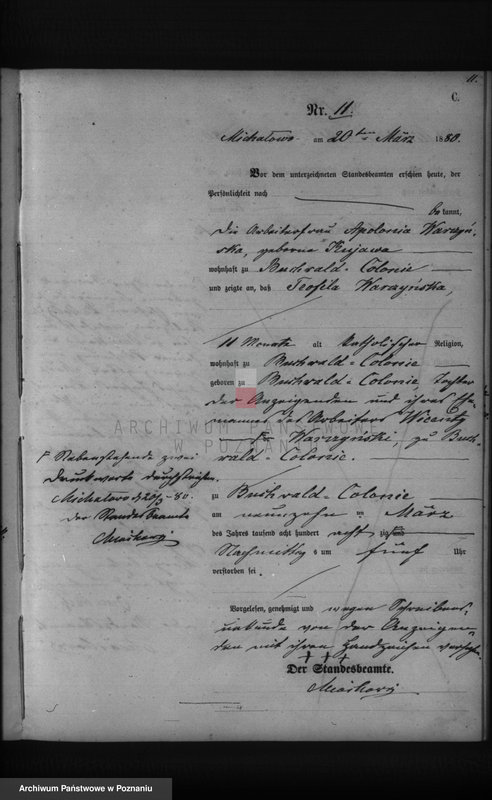 11.
C.
Nr. 11.
Michałowo am 20ten März 1880.
Vor dem unterzeichneten Standesbeamten erschien heute, der
Persönlichkeit nach
be kannt,
die Arbeiterfrau Apolonia Warzyń-
ska, geborene Kujawa
wohnhaft zu Buchwald-Colonie
und zeigte an, daß Teofila Warzyńska,
11 Monate alt katholischer Religion,
wohnhaft zu Buchwald-Colonie
geboren zu Buchwald-Colonie, Tochter
der Anzeigenden und ihres Ehe-
mannes des Arbeiters
Warzyński, zu Buch-
wald-Colonie.
ARCHIWUM PAŃSTWOWE
W POZNANIU
Nebenstehende zwei
Druckworte durchstrichen.
Michałowo d. 20/3 80.
Der Standesbeamte
zu Buchwald-Colonie
am neunzehn ten März
des Jahres tausend acht hundert acht zig und
Nachmittags um fünf Uhr
verstorben sei
Vorgelesen, genehmigt und wegen Schreibens-
unkunde von der Anzeigen-
den mit ihren Handzeichen versehen.
+ + +
Der Standesbeamte.
Archiwum Państwowe w Poznaniu